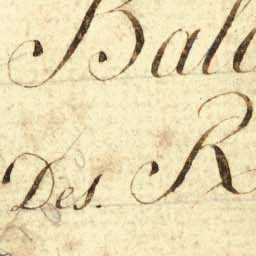 Bal
Des. R